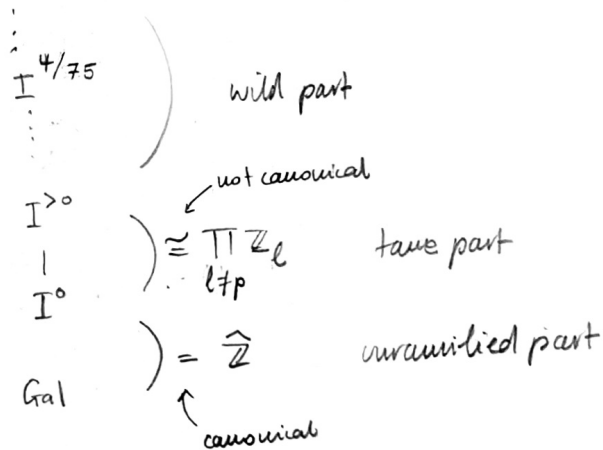 I^{4/75}
wild part
not canonical
I^{>0}
≅ ∏_{l≠p} ℤ_l tame part
I^0
= \hat{ℤ} unramified part
Gal
canonical